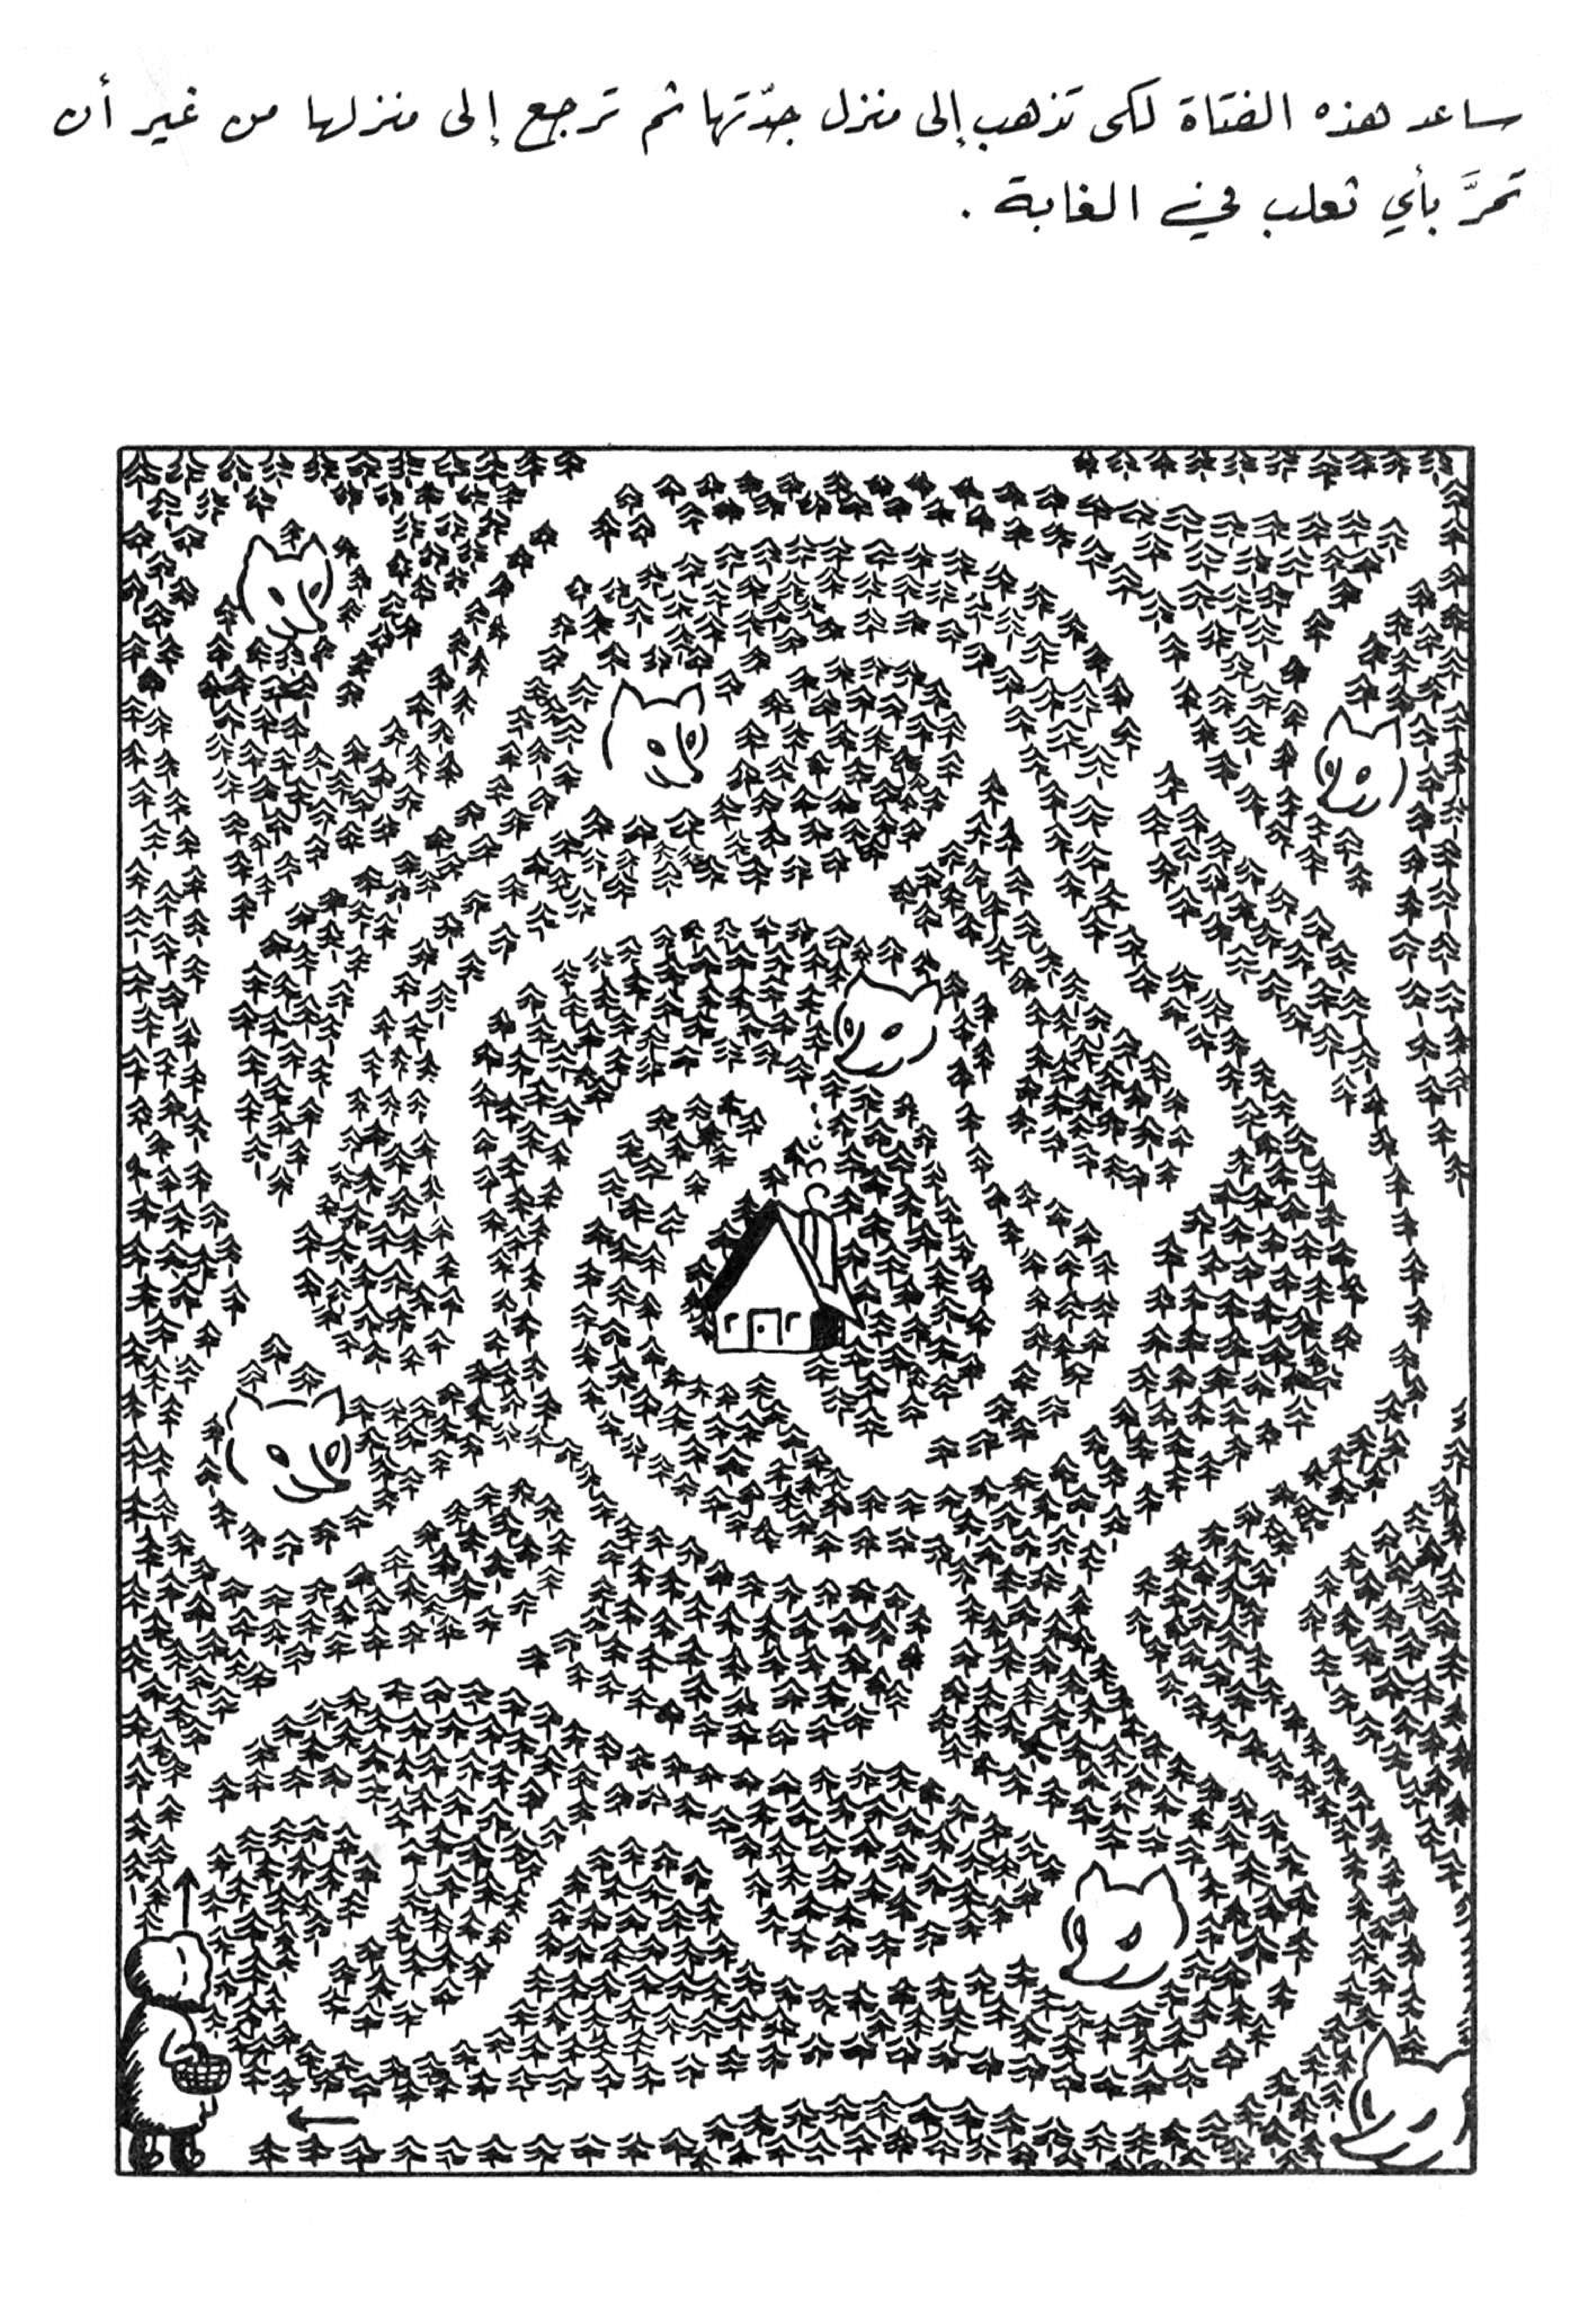 ساعد هذه الفتاة لكى تذهب إلى منزل جدّتها ثم ترجع إلى منزلها من غير أن
تمرَّ بأي ثعلب في الغابة .